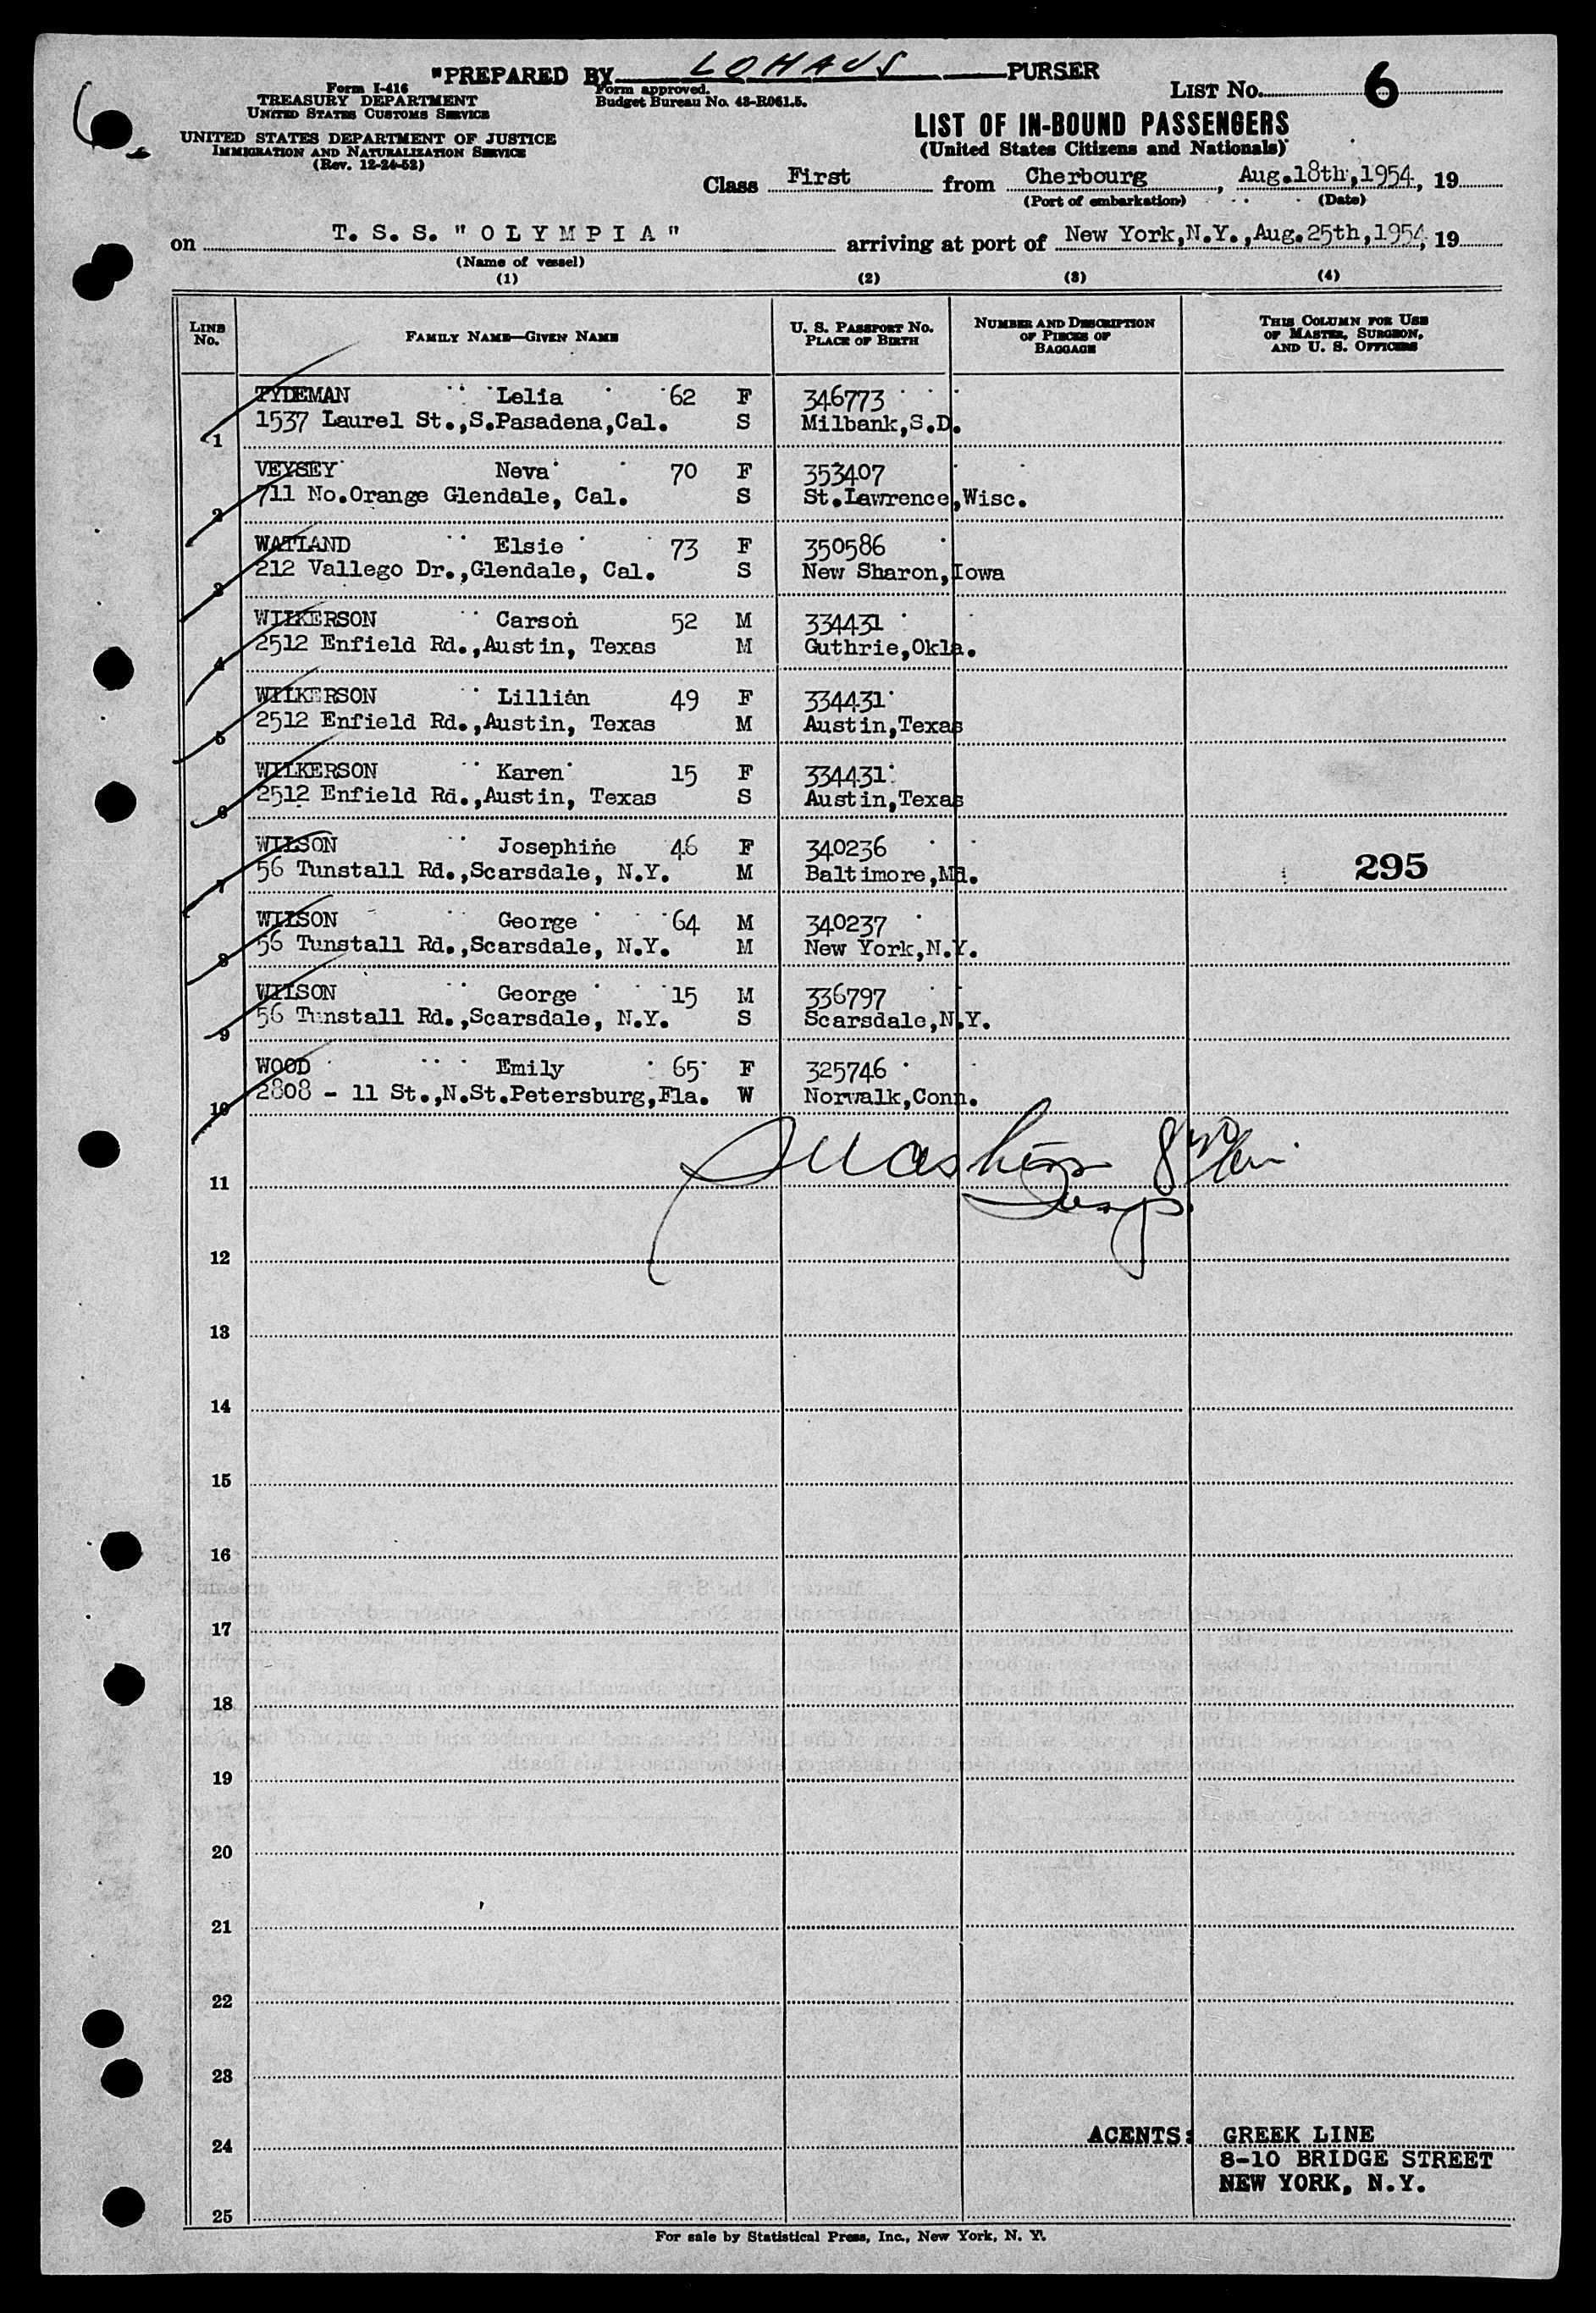 "PREPARED BY LOHAUS PURSER
Form I-416
TREASURY DEPARTMENT
UNITED STATES CUSTOMS SERVICE
UNITED STATES DEPARTMENT OF JUSTICE
IMMIGRATION AND NATURALIZATION SERVICE
(Rev. 12-24-52)
Form approved.
Budget Bureau No. 43-R061.5.
LIST No. 6
LIST OF IN-BOUND PASSENGERS
(United States Citizens and Nationals)
Class First from Cherbourg, Aug.18th,1954, 19
(Port of embarkation) (Date)
on T. S. S. "OLYMPIA" arriving at port of New York,N.Y.,Aug.25th,1954, 19
(Name of vessel)
(1) (2) (3) (4)
LINE No. FAMILY NAME—GIVEN NAME U. S. PASSPORT No. PLACE OF BIRTH NUMBER AND DESCRIPTION OF PIECES OF BAGGAGE THIS COLUMN FOR USE OF MASTER, SURGEON, AND U. S. OFFICERS
TYDEMAN Lelia 62 F 346773
1 1537 Laurel St.,S.Pasadena,Cal. S Milbank,S.D.
VEYSEY Neva 70 F 353407
2 711 No.Orange Glendale, Cal. S St.Lawrence,Wisc.
WATLAND Elsie 73 F 350586
3 212 Vallego Dr.,Glendale, Cal. S New Sharon,Iowa
WILKERSON Carson 52 M 334431
4 2512 Enfield Rd.,Austin, Texas M Guthrie,Okla.
WILKERSON Lillian 49 F 334431
5 2512 Enfield Rd.,Austin, Texas M Austin,Texas
WILKERSON Karen 15 F 334431
6 2512 Enfield Rd.,Austin, Texas S Austin,Texas
WILSON Josephine 46 F 340236
7 56 Tunstall Rd.,Scarsdale, N.Y. M Baltimore,Md. 295
WILSON George 64 M 340237
8 56 Tunstall Rd.,Scarsdale, N.Y. M New York,N.Y.
WILSON George 15 M 336797
9 56 Tunstall Rd.,Scarsdale, N.Y. S Scarsdale,N.Y.
WOOD Emily 65 F 325746
10 2808 - 11 St.,N.St.Petersburg,Fla. W Norwalk,Conn.
11
12
13
14
15
16
17
18
19
20
21
22
23
24 AGENTS: GREEK LINE
8-10 BRIDGE STREET
NEW YORK, N.Y.
25
For sale by Statistical Press, Inc., New York, N. Y.